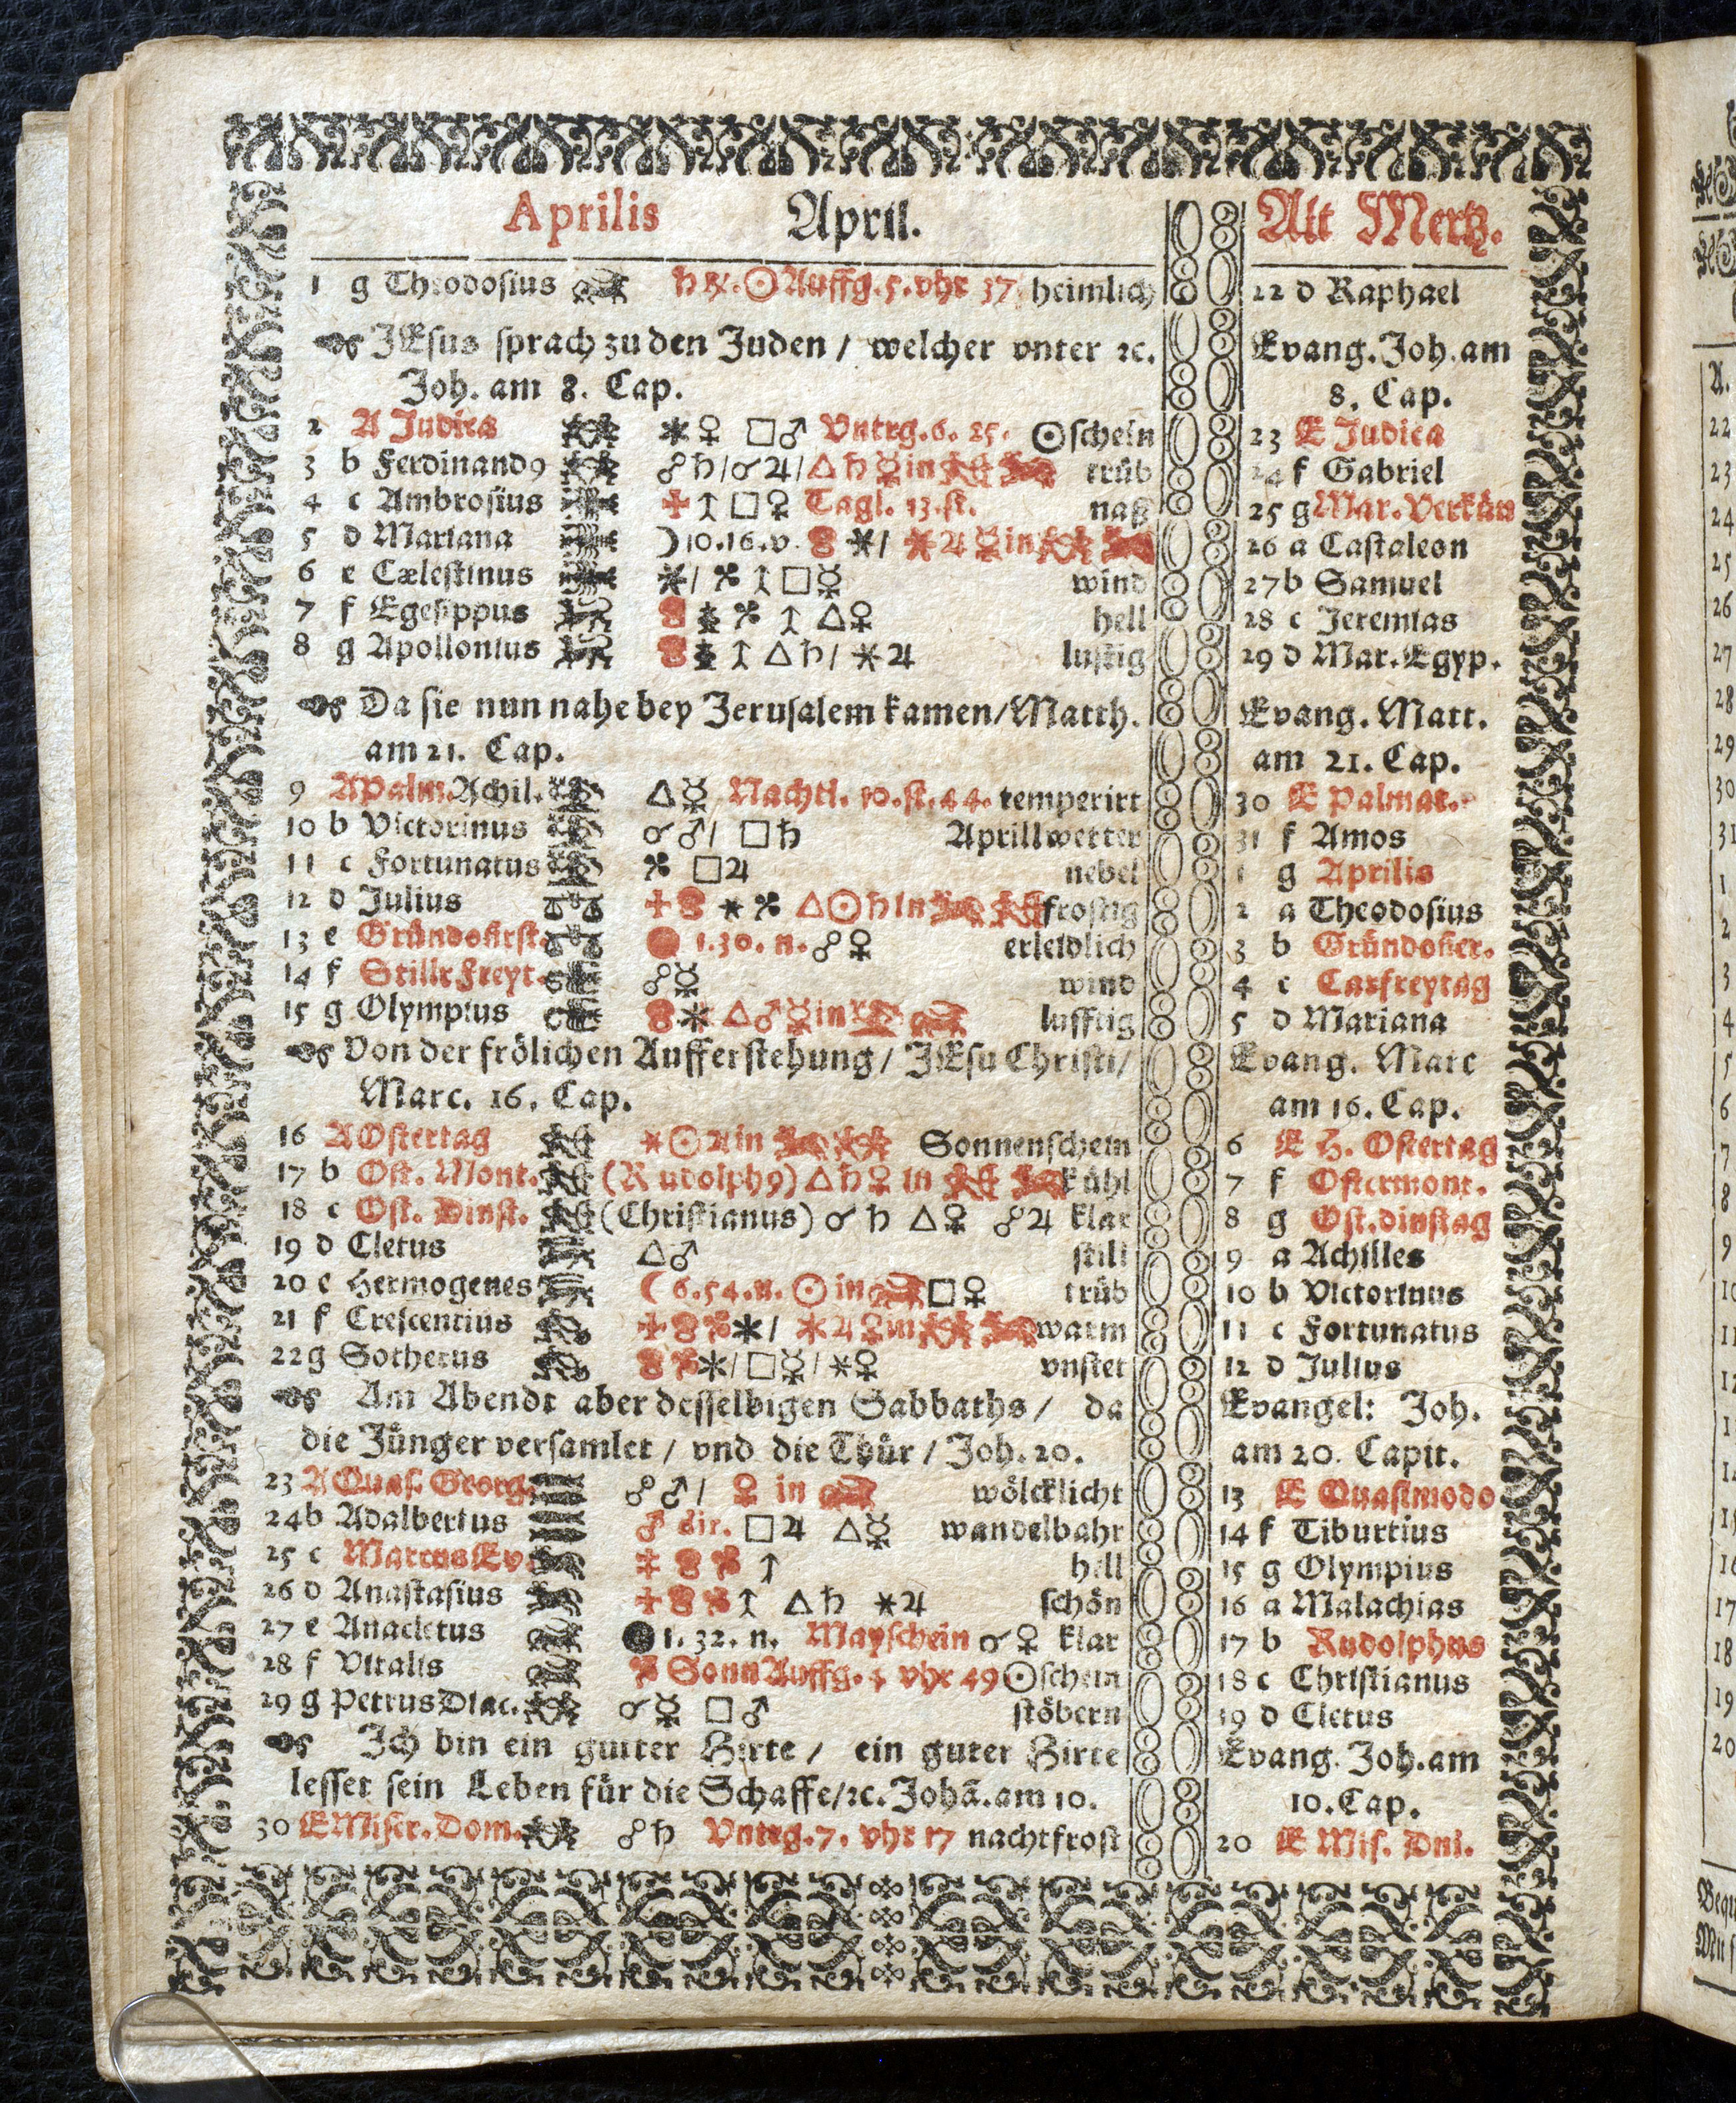 Aprilis April. Alt Mertz.
1 g Theodosius ♄ ☉ Auffg. 5. vhr 37. heimlich 22 d Raphael
JEsus sprach zu den Juden / welcher vnter ꝛc. Evang. Joh. am
Joh. am 8. Cap. 8. Cap.
2 A Judica ⚹ ♀ □ ♂ Vntrg. 6. 25. ☉schein 23 E Judica
3 b Ferdinandꝰ ☍ ♄ / ☌ ♃ / △ ♄ ☿ in trüb 24 f Gabriel
4 c Ambrosius □ ♀ Tagl. 13. st. naß 25 g Mar. Verkün
5 d Mariana ☽ 10. 16. v. ⚹ / ⚹ ♃ ☿ in 26 a Castaleon
6 e Cælestinus ⚹ / □ ☿ wind 27 b Samuel
7 f Egesippus △ ♀ hell 28 c Jeremias
8 g Apollonius △ ♄ / ⚹ ♃ lustig 29 d Mar. Egyp.
Da sie nun nahe bey Jerusalem kamen / Matth. Evang. Matt.
am 21. Cap. am 21. Cap.
9 A Palm. Achil. △ ☿ Nachtl. 10. st. 44. temperirt 30 E Palmar.
10 b Victorinus ☌ ♂ / □ ♄ Aprillwetter 31 f Amos
11 c Fortunatus □ ♃ nebel 1 g Aprilis
12 d Julius △ ☉ ♄ in frostig 2 a Theodosius
13 e Gründonrst. 1. 30. n. ☍ ♀ erleidlich 3 b Gründoner.
14 f Stille Freyt. ☍ ☿ wind 4 c Carfreytag
15 g Olympius ⚹ △ ♂ ☿ in lufftig 5 d Mariana
Von der frölichen Aufferstehung / JEsu Christi / Evang. Marc
Marc. 16. Cap. am 16. Cap.
16 A Ostertag ⚹ ☉ ♃ in Sonnenschein 6 E H. Ostertag
17 b Ost. Mont. (Rudolphꝰ) △ ♄ ♀ in kühl 7 f Ostermont.
18 c Ost. Dinst. (Christianus) ☌ ♄ △ ♀ ☍ ♃ klar 8 g Ost. dinstag
19 d Cletus △ ♂ still 9 a Achilles
20 e Hermogenes ☾ 6. 54. n. ☉ in □ ♀ trüb 10 b Victorinus
21 f Crescentius ⚹ / ⚹ ♃ ☿ in warm 11 c Fortunatus
22 g Sotherus ⚹ / □ ☿ / ⚹ ♀ vnstet 12 d Julius
Am Abendt aber desselbigen Sabbaths / da Evangel: Joh.
die Jünger versamlet / vnd die Thür / Joh. 20. am 20. Capit.
23 A Quas. Georg. ☍ ♂ / ♀ in wölcklicht 13 E Quasimodo
24 b Adalbertus ♂ dir. □ ♃ △ ☿ wandelbahr 14 f Tiburtius
25 c Marcus Ev. hell 15 g Olympius
26 d Anastasius △ ♄ ⚹ ♃ schön 16 a Malachias
27 e Anacletus 1. 32. n. Mayschein ☌ ♀ klar 17 b Rudolphus
28 f Vitalis Sonn Auffg. 4 vhr 49 ☉schein 18 c Christianus
29 g Petrus Diac. ☌ ☿ □ ♂ stöbern 19 d Cletus
Ich bin ein gutter Hirte / ein guter Hirte Evang. Joh. am
lesset sein Leben für die Schaffe / ꝛc. Johã. am 10. 10. Cap.
30 E Miser. Dom. ☍ ♄ Vntrg. 7. vhr 17 nachtfrost 20 E Mis. Dni.